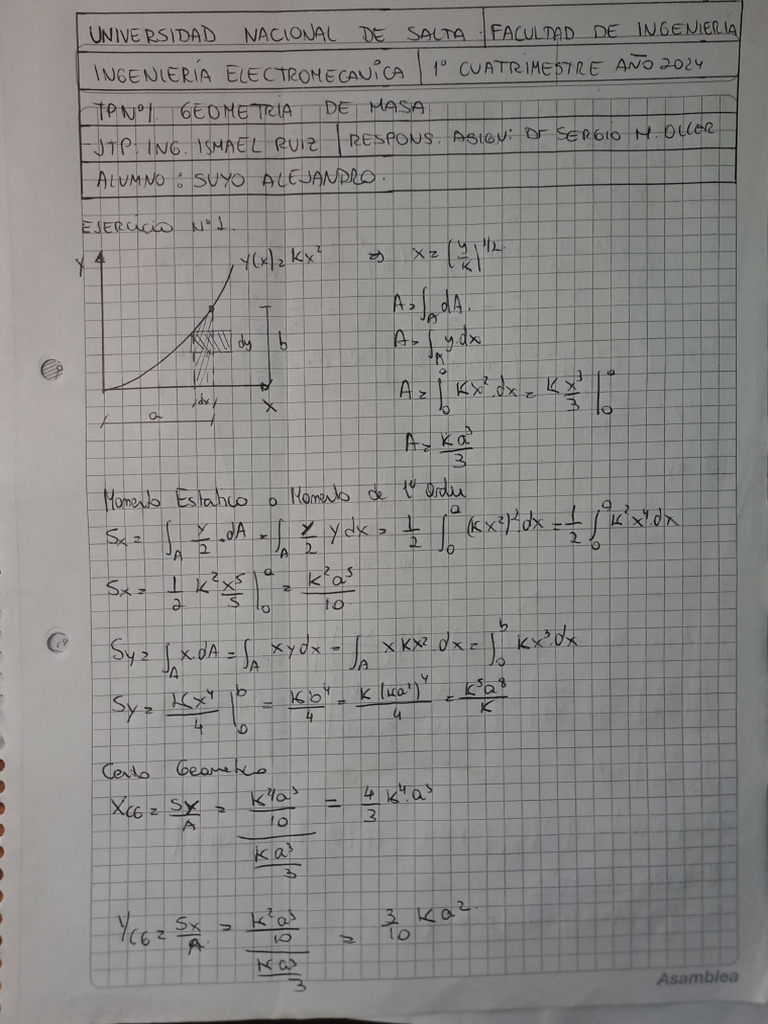 UNIVERSIDAD NACIONAL DE SALTA FACULTAD DE INGENIERIA
INGENIERÍA ELECTROMECANÍCA 1° CUATRIMESTRE AÑO 2024
TP N°1. GEOMETRIA DE MASA
JTP: ING. ISMAEL RUIZ RESPONS. ASIGN: Dr SERGIO H. OLLER
ALUMNO: SUYO ALEJANDRO.
EJERCICIO N°1.
Y
Y(x) = Kx²
⇒ x = (y/K)^1/2
A = ∫_A dA.
dy
b
A = ∫_A y.dx
dx
x
a
A = ∫_0^a Kx².dx = K x³/3 |_0^a
A = Ka³/3
Momento Estatico o Momento de 1er Orden
Sx = ∫_A y/2 .dA = ∫_A y/2 y dx = 1/2 ∫_0^a (Kx²)².dx = 1/2 ∫_0^a K²x⁴.dx
Sx = 1/2 K² x⁵/5 |_0^a = K²a⁵/10
Sy = ∫_A x.dA = ∫_A x y dx = ∫_A x Kx².dx = ∫_0^b Kx³.dx
Sy = Kx⁴/4 |_0^b = Kb⁴/4 = K(Ka²)⁴/4 = K⁵a⁸/K
Cento Geometrico
X_CG = Sx/A = (K⁴a³/10)/(Ka³/3) = 4/3 K⁴.a³
Y_CG = Sx/A = (K²a³/10)/(Ka³/3) = 3/10 Ka²
Asamblea